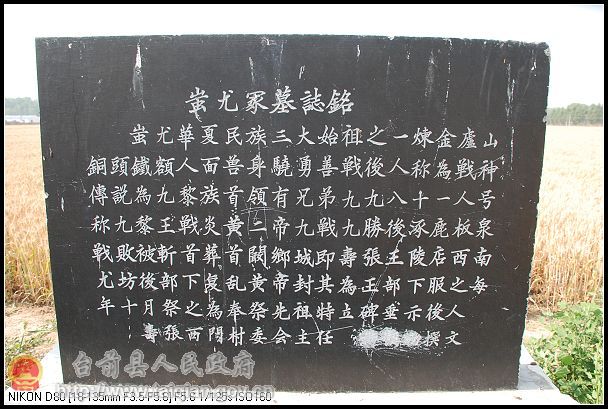 蚩尤冢墓誌銘
蚩尤華夏民族三大始祖之一煉金廬山
銅頭鐵額人面兽身驍勇善戰後人称為戰神
傳説為九黎族首領有兄弟九九八十一人号
称九黎王戰炎黄二帝九戰九勝後涿鹿板泉
戰敗被斩首葬首闞鄉城即壽張王陵店西南
尤坊後部下复乱黄帝封其為王部下服之每
年十月祭之為奉祭先祖特立碑垂示後人
壽張西閆村委会主任 撰文
台前县人民政府
http://www.taiqian.gov.cn
NIKON D80 [18-135mm F3.5-F5.6] F5.6 1/125s ISO160